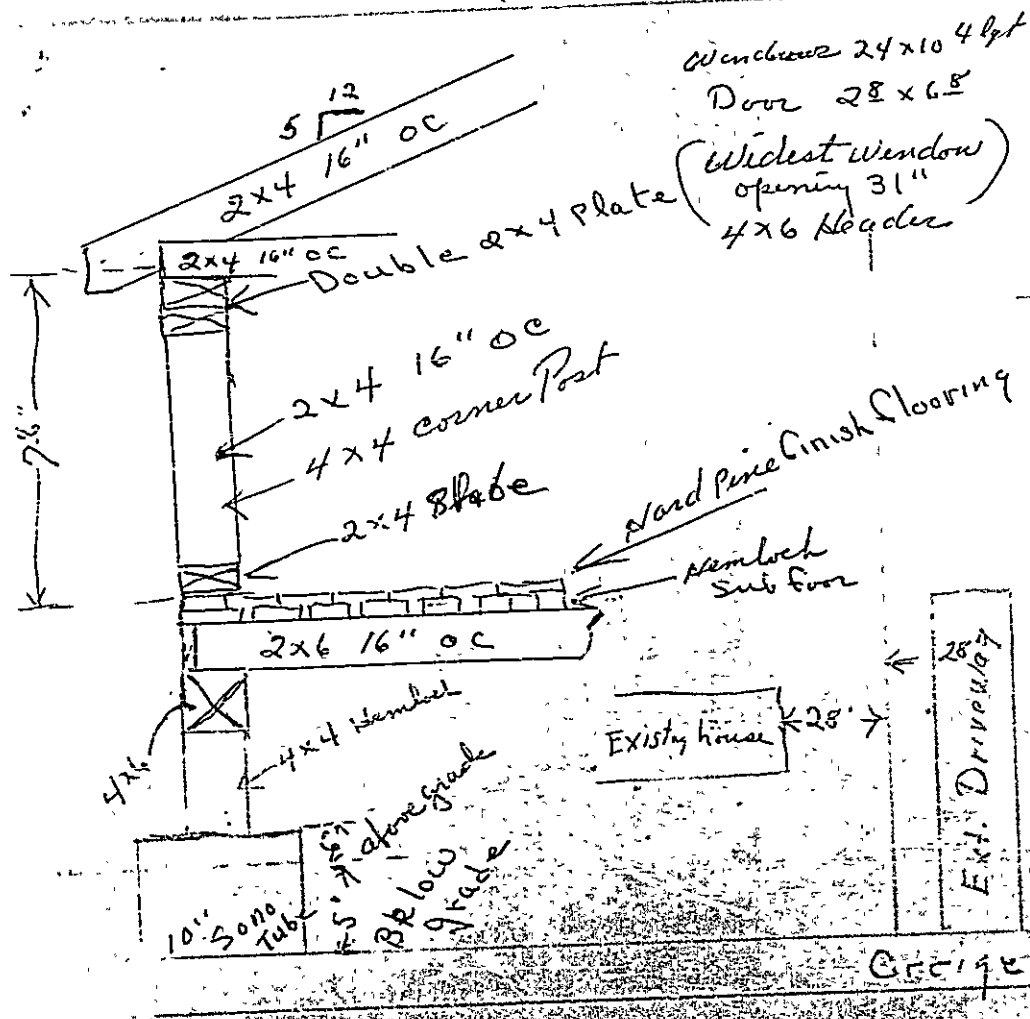 Windows 24x10 4 lgt
Door 2 8 x 6 8
(Widest window
opening 31")
4x6 Header
12
5
2x4 16" OC
2x4 16" OC
Double 2x4 Plate
7'6"
2x4 16" OC
4x4 Corner Post
2x4
Hard Pine Finish Flooring
Hemlock
Sub Foor
2x6 16" OC
4x6
4x4 Hemlock
Existng house
28'
28'
Ext. Driveway
above grade
Below
grade
10" Sono
Tub